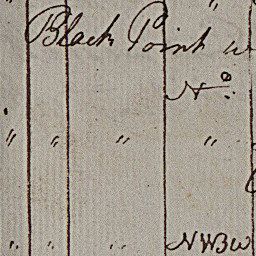 Black Point w
N°.
" " " "
" " " NWBW